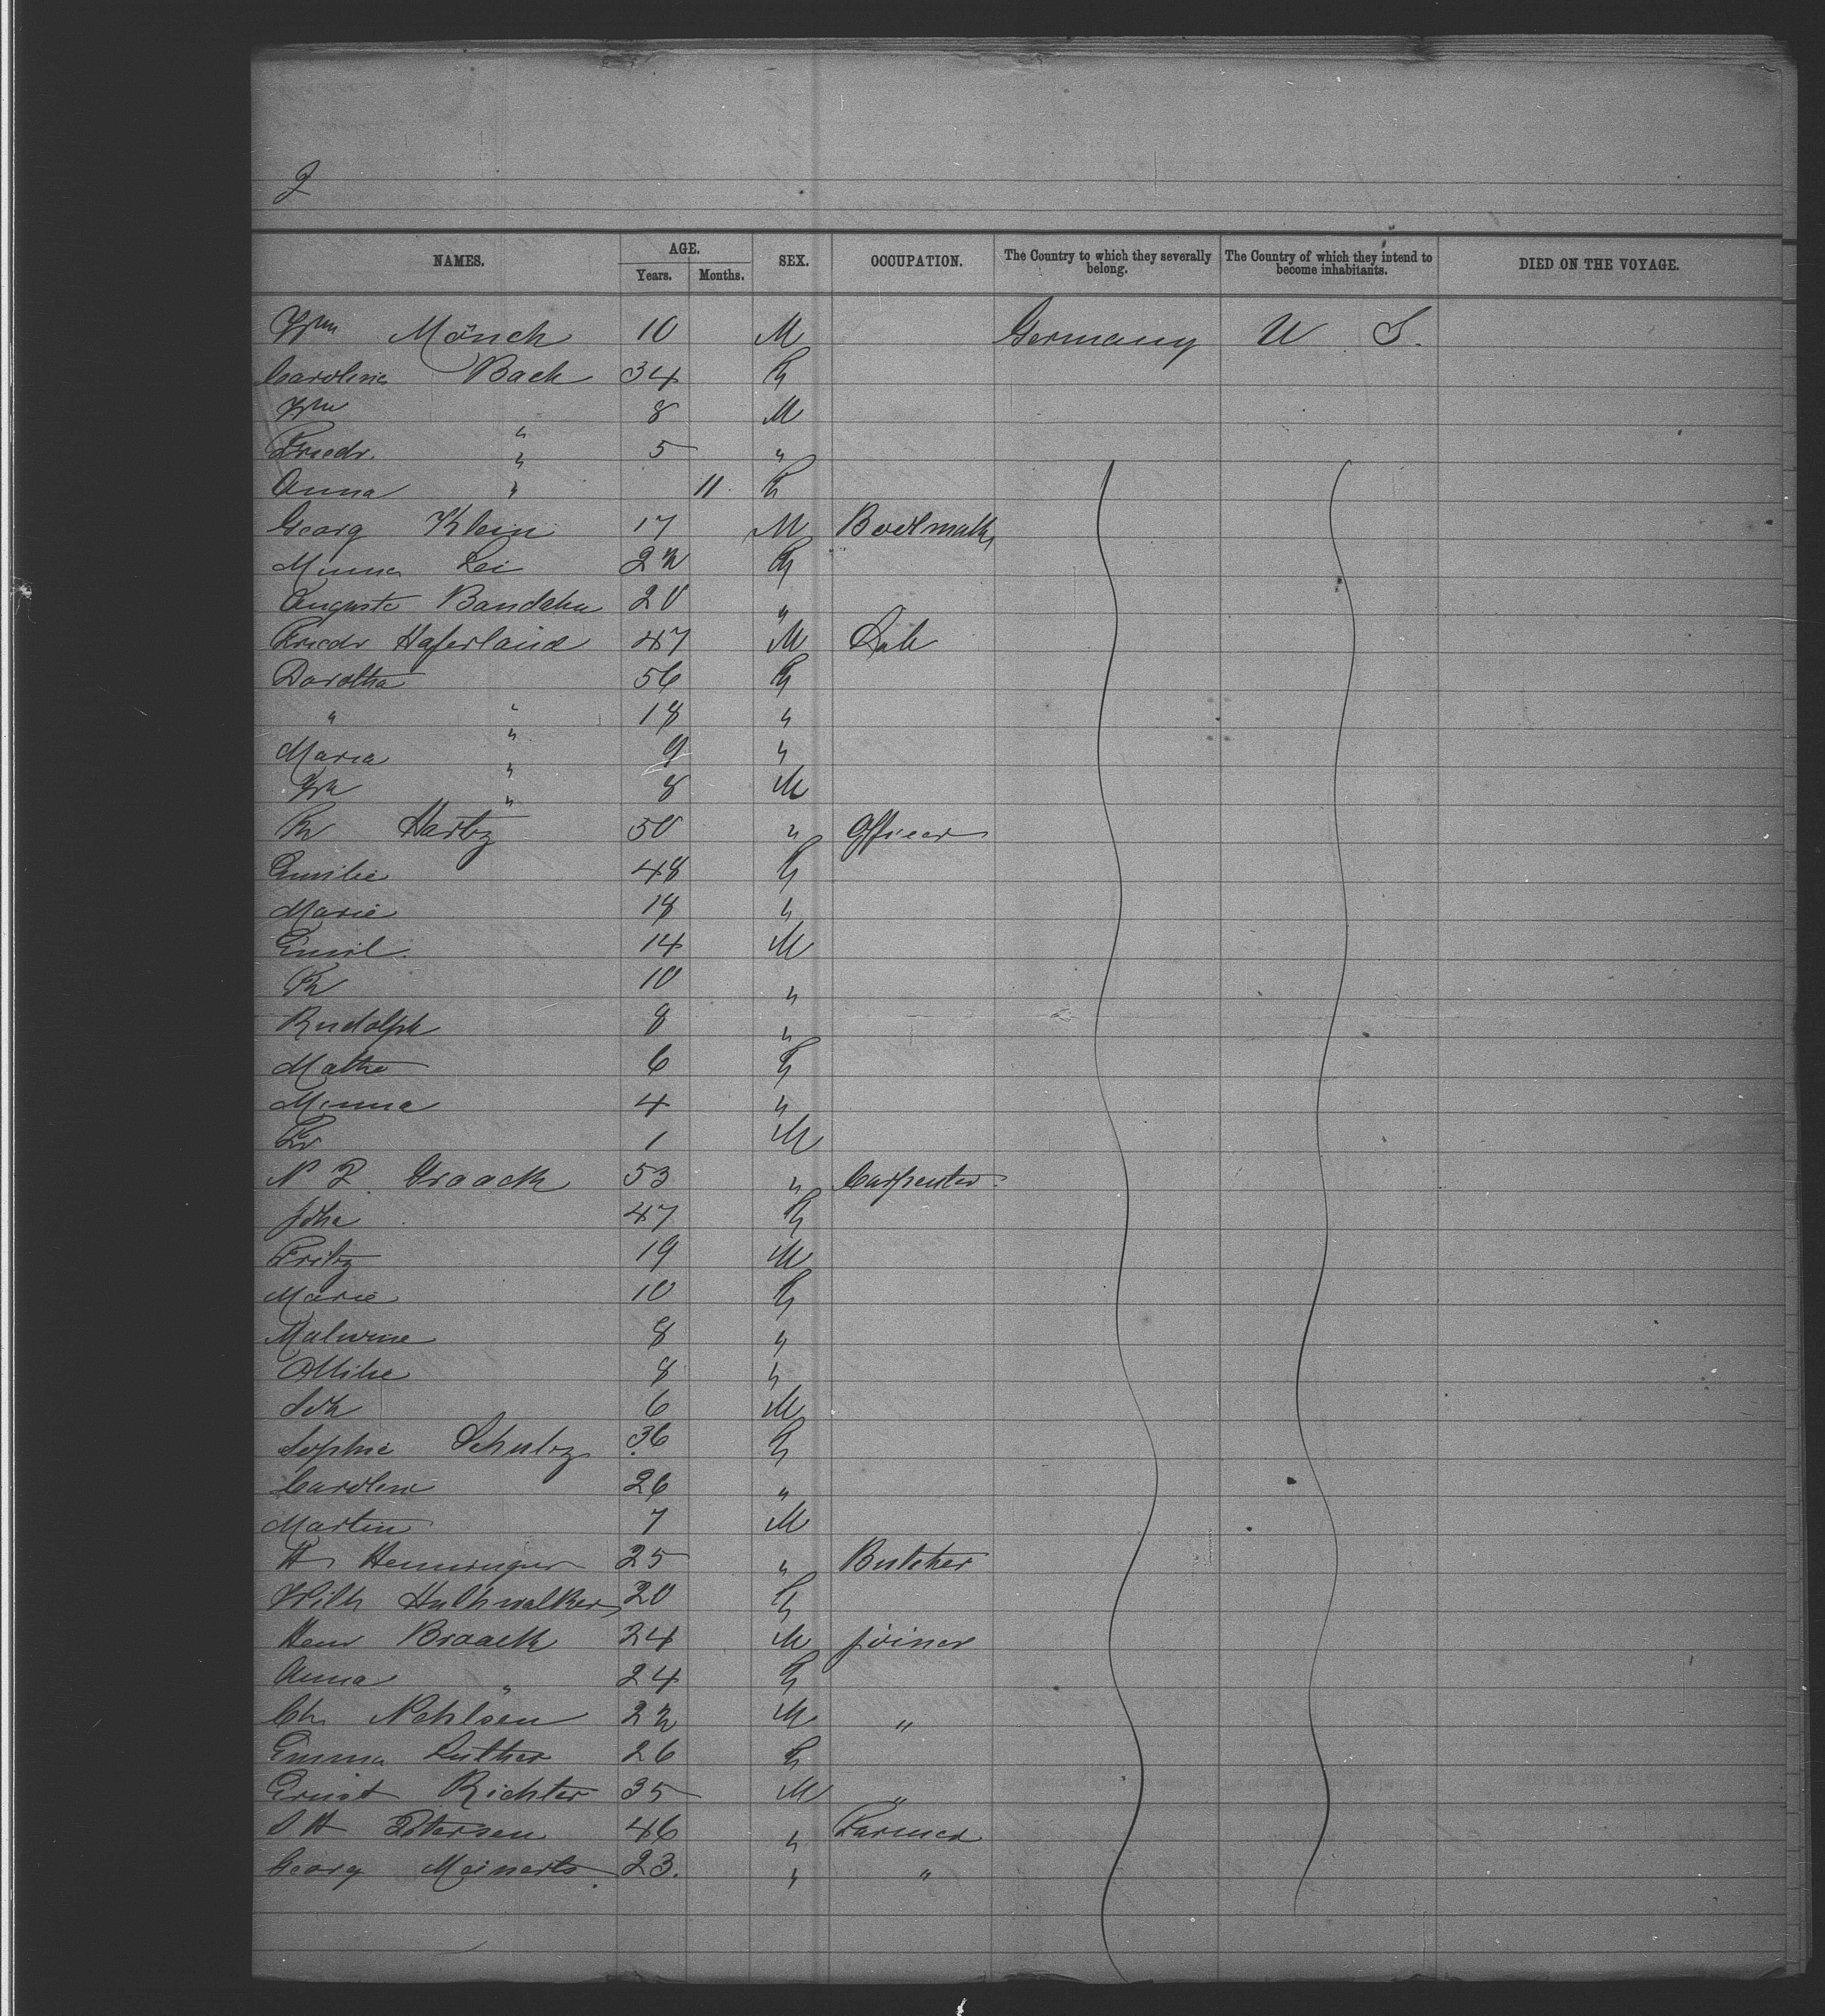 2
NAMES. AGE. Years. Months. SEX. OCCUPATION. The Country to which they severally belong. The Country of which they intend to become inhabitants. DIED ON THE VOYAGE.
Wm Mönch 10 M Germany U S.
Caroline Back 34 F
Wm " 8 M
Friedr. " 5 "
Anna " 11 F
Georg Klein 17 M
Minna Lei 22 F
Auguste 20 "
Friedr Haferland 47 M Lab
Dorothea 56 F
" " 18 "
Maria " 9 "
Wm " 8 M
Hartz 50 " Officer
Emilie 48 F
Marie 18 "
Emil 14 M
10 "
Rudolph 8 "
6 F
Minna 4 "
Fr 1 M
N P Graack 53 " Carpenter
Joha 47 F
Fritz 19 M
Marie 10 F
Malwine 8 "
Ottilie 8 "
Joh 6 M
Sophie Schultz 36 F
Carolene 26 "
Martin 7 M
H 25 " Butcher
Wilh 20 F
Henr Braack 24 M joiner
Anna " 24 F
Ch. Nehlsen 22 M "
Emma Luther 26 F
Ernst Richter 35 M "
Petersen 46 " Farmer
Georg Meinerts 23. " "